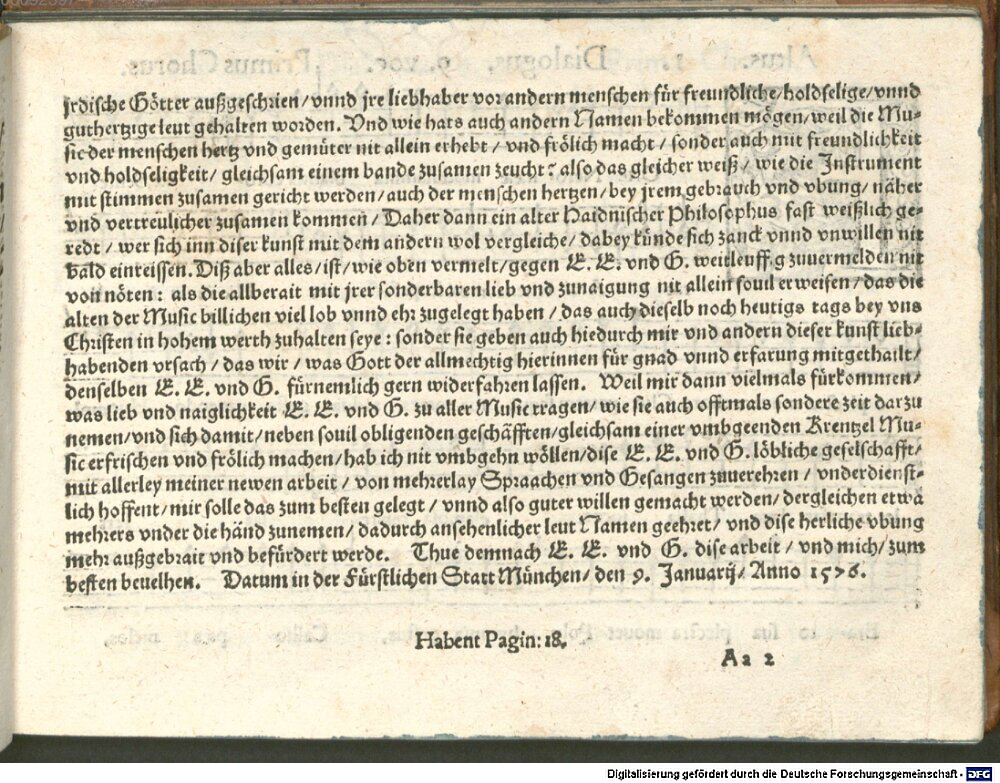 jrdische Götter außgeschrien / vnnd jre liebhaber vor andern menschen für freundliche / holdselige / vnnd
guthertzige leut gehalten worden. Vnd wie hats auch andern Namen bekommen mögen / weil die Mu-
sic der menschen hertz vnd gemüter nit allein erhebt / vnd frölich macht / sonder auch mit freundlichkeit
vnd holdseligkeit / gleichsam einem bande zusamen zeucht: also das gleicher weiß / wie die Instrument
mit stimmen zusamen gericht werden / auch der menschen hertzen / bey jrem gebrauch vnd vbung / näher
vnd vertreulicher zusamen kommen / Daher dann ein alter Haidnischer Philosophus fast weißlich ge-
redt / wer sich inn diser kunst mit dem andern wol vergleiche / dabey künde sich zanck vnnd vnwillen nit
bald einreissen. Diß aber alles / ist / wie oben vermelt / gegen E. E. vnd G. weitleuffig zuuermelden nit
von nöten: als die allberait mit jrer sonderbaren lieb vnd zunaigung nit allein souil erweisen / das die
alten der Music billichen viel lob vnnd ehr zugelegt haben / das auch dieselb noch heutigs tags bey vns
Christen in hohem werth zuhalten seye: sonder sie geben auch hiedurch mir vnd andern dieser kunst lieb-
habenden vrsach / das wir / was Gott der allmechtig hierinnen für gnad vnnd erfarung mitgethailt /
denselben E. E. vnd G. fürnemlich gern widerfahren lassen. Weil mir dann vielmals fürkommen /
was lieb vnd naiglichkeit E. E. vnd G. zu aller Music tragen / wie sie auch offtmals sondere zeit darzu
nemen / vnd sich damit / neben souil obligenden geschäfften / gleichsam einer vmbgeenden Krentzel Mu-
sic erfrischen vnd frölich machen / hab ich nit vmbgehn wöllen / dise E. E. vnd G. löbliche geselschafft /
mit allerley meiner newen arbeit / von mehrerlay Spraachen vnd Gesangen zuuerehren / vnderdienst-
lich hoffent / mir solle das zum besten gelegt / vnnd also guter willen gemacht werden / dergleichen etwa
mehrers vnder die händ zunemen / dadurch ansehenlicher leut Namen geehret / vnd dise herliche vbung
mehr außgebrait vnd befürdert werde. Thue demnach E. E. vnd G. dise arbeit / vnd mich / zum
besten beuelhen. Datum in der Fürstlichen Statt München / den 9. Januarij / Anno 1576.
Habent Pagin: 18.
Aa 2
Digitalisierung gefördert durch die Deutsche Forschungsgemeinschaft - DFG